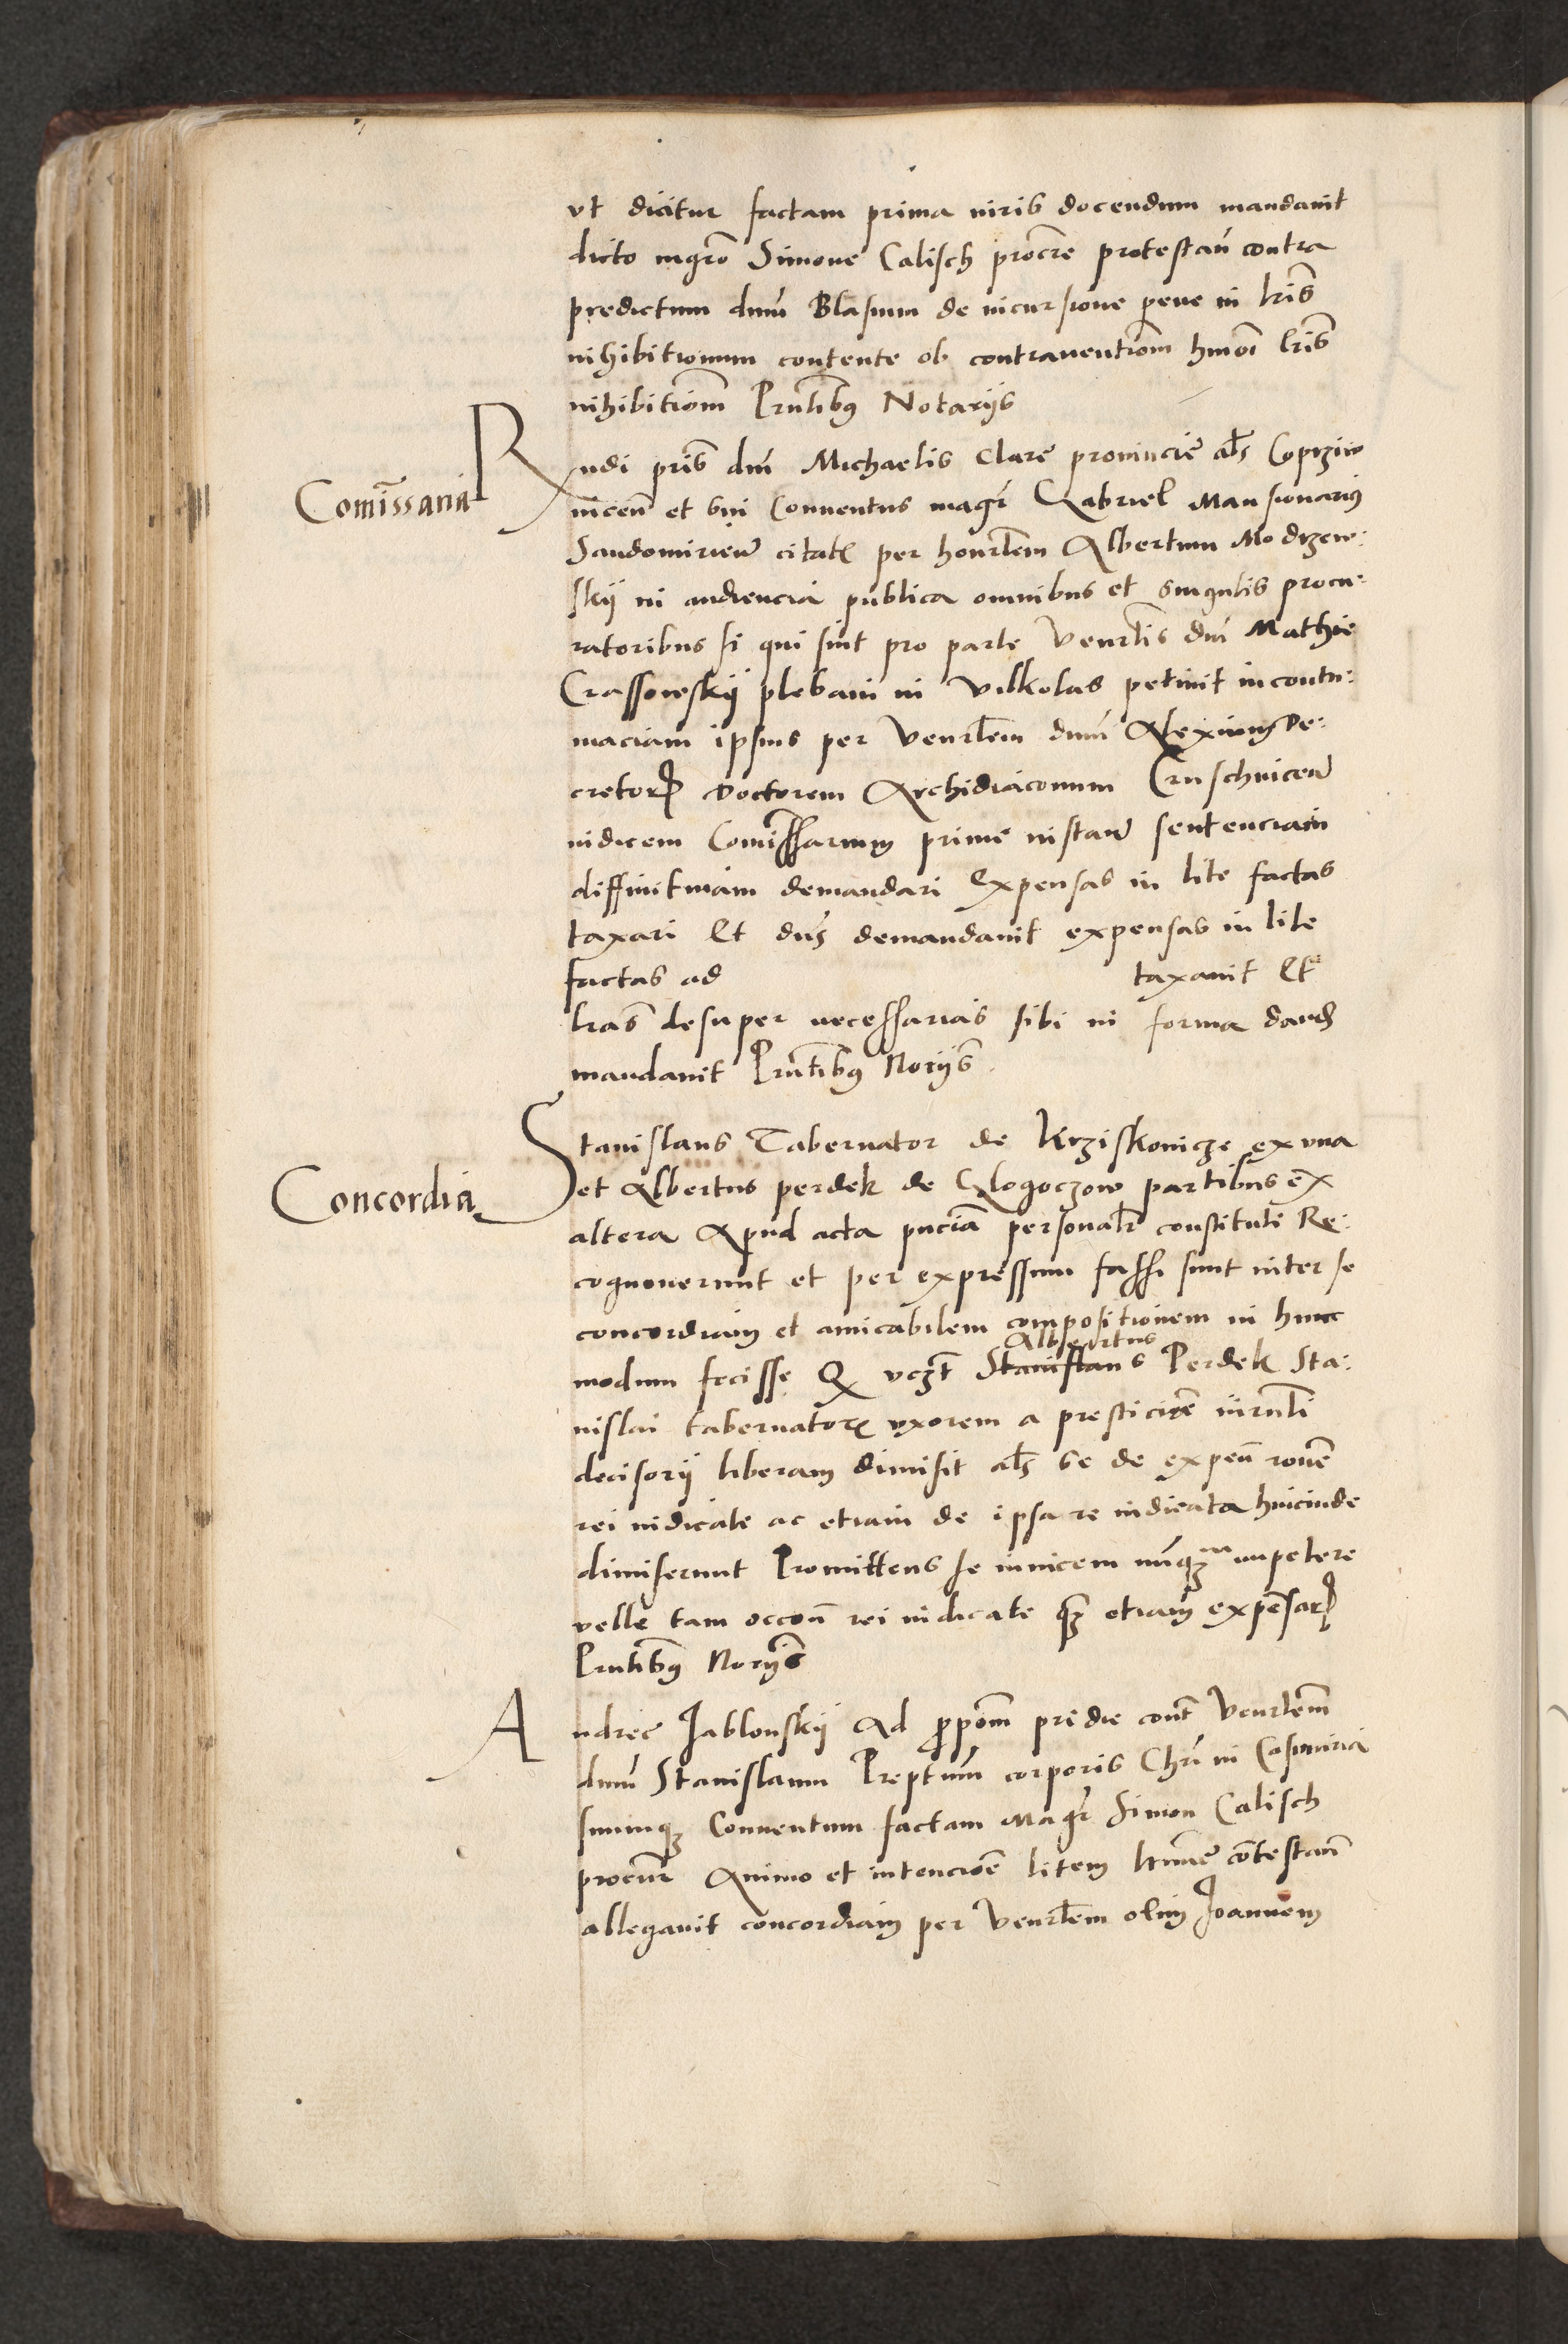 vt dicitur factam prima iuris docendum mandauit
dicto mgro Simone Calisch procre protestan contra
predictum dnm Blasium de incursione pene in lris
inhibitionum contente ob contrauentiom hmoi lris
inhibitiom Prntibus Notarijs
Comissaria
Rndi pris dni Michaelis Clare prouincie als Coprziw
nicen et sui Conuentus magr Gabriel Mansionarius
Sandomirien citat per honrlem Albertum Modrzew:
skij in audiencia publica omnibus et singulis procu:
ratoribus si qui sint pro parte Venrlis dni Mathie
Crassowskij plebani in Vilkolas petiuit in contu:
maciam ipsius per Venrlem dnm Alexium De:
cretor Doctorem Archidiaconum Cruschuicen
iudicem Comissarium prime instan sentenciam
diffinitiuam demandari Expensas in lite factas
taxari Et dns demandauit expensas in lite
factas ad taxauit Et
lras desuper necessarias sibi in forma dand
mandauit Prntibus Norijs
Concordia
Stanislaus Tabernator de Krziskowicze ex vna
et Albertus perdek de Glogoczow partibus ex
altera Apud acta pncia personalr constituti Re:
cognouerunt et per expressum fassi sunt inter se
concordiam et amicabilem compositionem in hunc
Albertus
modum fecisse Q vczt Stanislaus Perdek Sta:
nislai tabernatoris vxorem a presticioe iurnti
decisorij liberam dimisit als se de expen rone
rei iudicate ac etiam de ipsa re iudicata hincinde
dimiserunt Promittens se inuicem nunqz impetere
velle tam occon rei iudicate qz etiam expensar
Prntibus Norijs
Andree Jablonskij Ad propom pridie cont Venrlem
dnm Stanislaum Preptum corporis Chri in Casimiria
suumqz Conuentum factam Magr Simon Calisch
procur Animo et intencioe litem ... contestan
allegauit concordiam per Venrlem olim Joannem